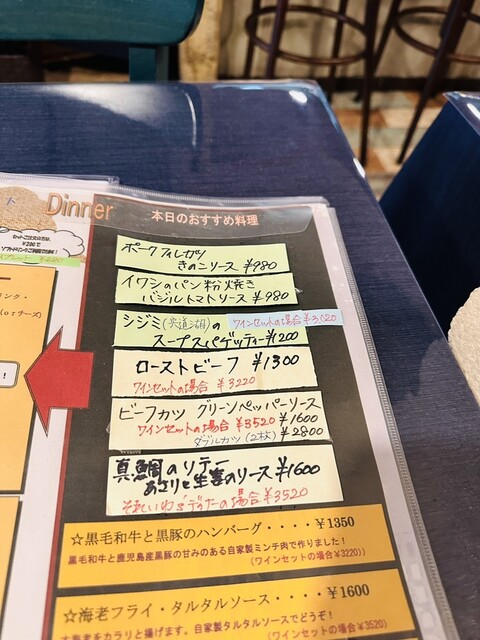 Dinner
本日のおすすめ料理
ポークフィレカツ
きのこソース ¥980
イワシのパン粉焼き
バジルトマトソース ¥980
シジミ(宍道湖)の ワインセットの場合¥3120
スープスパゲッティー ¥1200
ローストビーフ ¥1300
ワインセットの場合 ¥3220
ビーフカツ グリーンペッパーソース
ワインセットの場合 ¥3520 ¥1600
ダブルカツ(2枚) ¥2800
真鯛のソテー
あさりと生姜のソース ¥1600
ディナーの場合 ¥3520
☆黒毛和牛と黒豚のハンバーグ・・・・¥1350
黒毛和牛と鹿児島産黒豚の甘みのある自家製ミンチ肉で作りました!
(ワインセットの場合¥3220))
☆海老フライ・タルタルソース・・・・¥1600
海老をカラリと揚げます。自家製タルタルソースでどうぞ!
(ワインセットの場合¥3520)